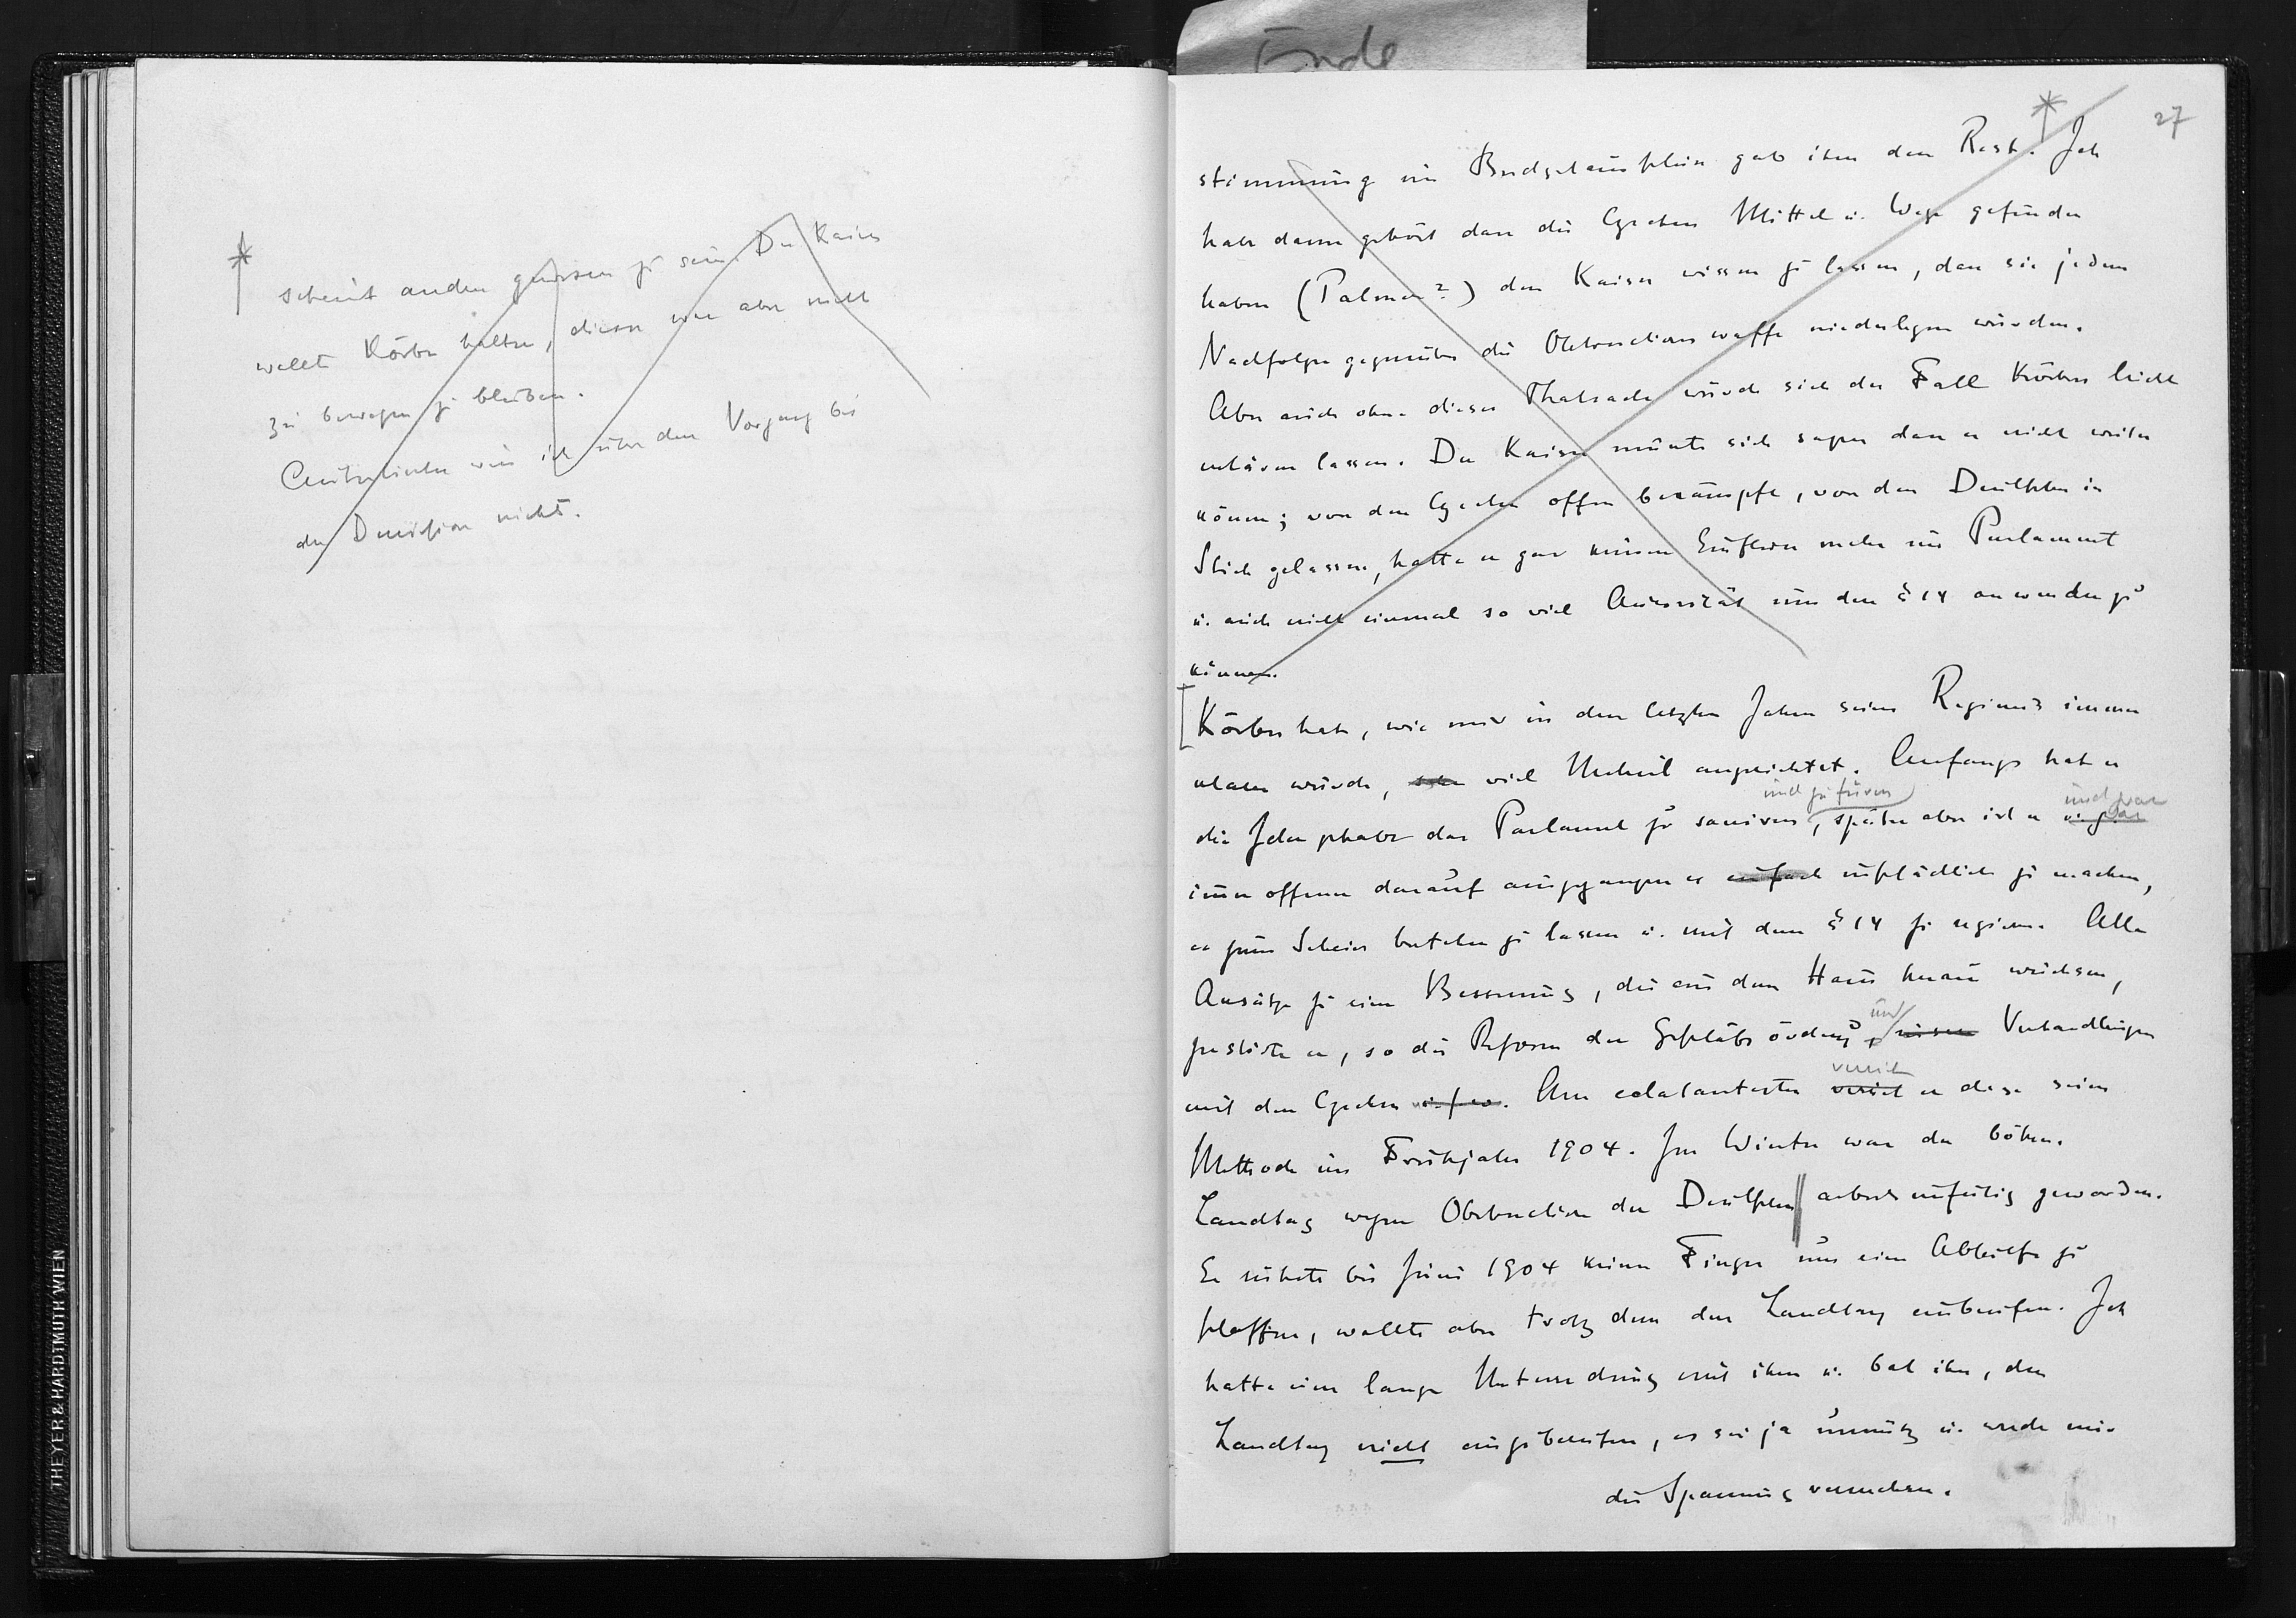 Ende
27
*
scheint anders gewesen zu sein. Der Kaiser
wollte Körber halten, dieser war aber nicht
zu bewegen zu bleiben.
Authentisches weis ich über den Vorgang bei
der Demission nichts.
*
stimmung im Budgetausschuss gab ihm den Rest. Ich
habe dann gehört dass die Czechen Mittel u. Wege gefunden
haben (Palmer?) den Kaiser wissen zu lassen, dass sie jedem
Nachfolger gegenüber die Obstructionswaffe niederlegen würden.
Aber auch ohne dieser Thatsache würde sich der Fall Körbers leicht
erklären lassen. Der Kaiser musste sich sagen dass er nicht weiter
könne; von den Czechen offen bekämpft, von den Deutschen im
Stich gelassen, hatte er gar keinen Einfluss mehr im Parlament
u. auch nicht einmal so viel Autorität um den § 14 anwenden zu
können.
[Körber hat, wie mir in den letzten Jahren seines Regimes immer
klarer wurde, sehr viel Unheil angerichtet. Anfangs hat er
und zu führen
und zwar
die Idee gehabt das Parlament zu saniren, später aber ist er u. zwar
immer offener darauf ausgegangen es einfach unschädlich zu machen,
es zum Schein bestehen zu lassen u. mit dem § 14 zu regieren. Alle
Ansätze zu einer Besserung, die aus dem Haus heraus wuchsen,
und
zerstörte er, so die Reform der Geschäftsordnung, Verhandlungen
verriet
mit den Czechen u. s. w. Am eclatantesten verriet er diese seine
Methode im Frühjahr 1904. Im Winter war der böhm.
Landtag wegen Obstruction der Deutschen || arbeitsunfähig geworden.
Er rührte bis Juni 1904 keinen Finger um eine Abhilfe zu
schaffen, wollte aber trotz dem den Landtag einberufen. Ich
hatte eine lange Unterredung mit ihm u. bat ihn, den
Landtag nicht einzuberufen, es sei ja unnütz u. werde nur
die Spannung vermehren.
THEYER & HARDTMUTH WIEN